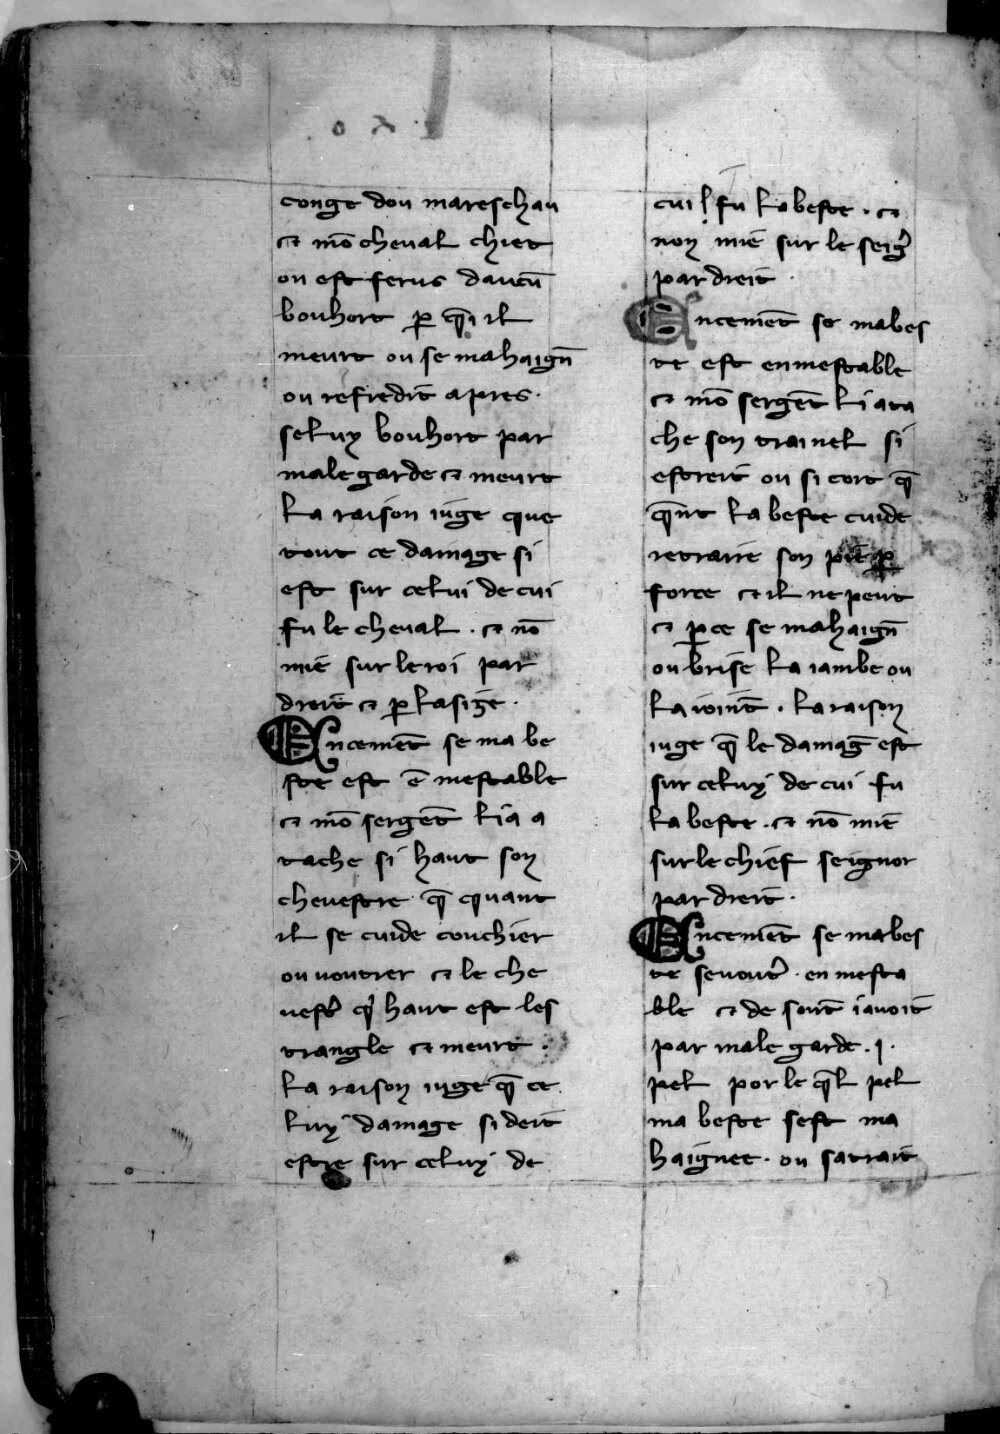 conge dou mareschau
⁊ mõ cheval chiet
ou est ferus daucũ
bouhort p̱ q̃i il
meurt ou se mahaign̄
ou refredit apres ·
seluy bouhort par
male garde ⁊ meurt
La raison iuge que
tout ce damage si
est sur celui de cui
fu le cheval · ⁊ nõ
mie sur le roi par
dreit ⁊ p̱ lasize ·
Encemēt se ma be
ste est ē mestable
⁊ mõ sergēt ki a a
tache si haut son
chevestre q̄ quant
il se cuide couchier
ou voutrer ⁊ le che
vestr̉ q̉ haut est les
trangle ⁊ meurt ·
La raison iuge q̄ ce
luy damage si deit
estre sur celuy de
cui fu la beste · ⁊
non mie sur le seigr̉
par dreit ·
Encemēt se ma bes
te est en mestable
⁊ mõ sergēt ki ata
che son trainel si
estreit ou si cort q̄
q̄nt la beste cuide
retraire son pie p̱
force ⁊ il ne peut
⁊ p̱ ce se mahaign̄
ou brise la iambe ou
la ioint · La raison
iuge q̄ le damaḡ est
sur celuy de cui fu
la beste · ⁊ nõ mie
sur le chief seignor
par dreit ·
Encemēt se ma bes
te se voutr̉ · en mesta
ble ⁊ de sout i avoit
par male garde · j ·
pel por le q̄l pel
ma beste sest ma
haignee · ou satrait